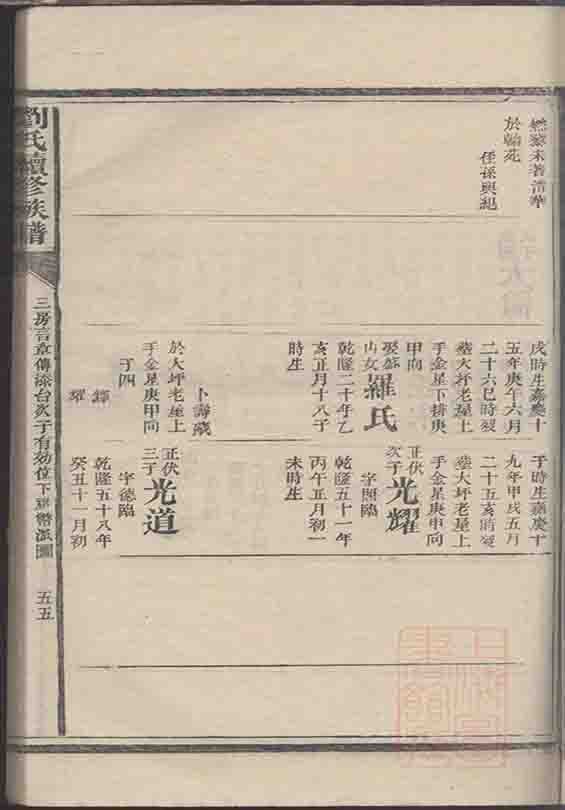 燃藜未著清華
於翰苑
侄孫興紀
戌時生嘉慶十
五年庚午六月
二十六巳時歿
塟大坪老屋上
手金星下排庚
甲向
娶盛
山女
羅氏
乾隆二十年乙
亥正月十八子
時生
卜壽藏
於大坪老屋上
手金星庚甲向
子四
鐸
耀
子時生嘉慶十
九年甲戌五月
二十五亥時歿
塟大坪老屋上
手金星庚甲向
正伏
次子
光耀
字照臨
乾隆五十一年
丙午正月初一
未時生
正伏
三子
光道
字德臨
乾隆五十八年
癸丑十一月初
劉氏續修族譜
三房言章傳添台次子有効位下 派圖
五五